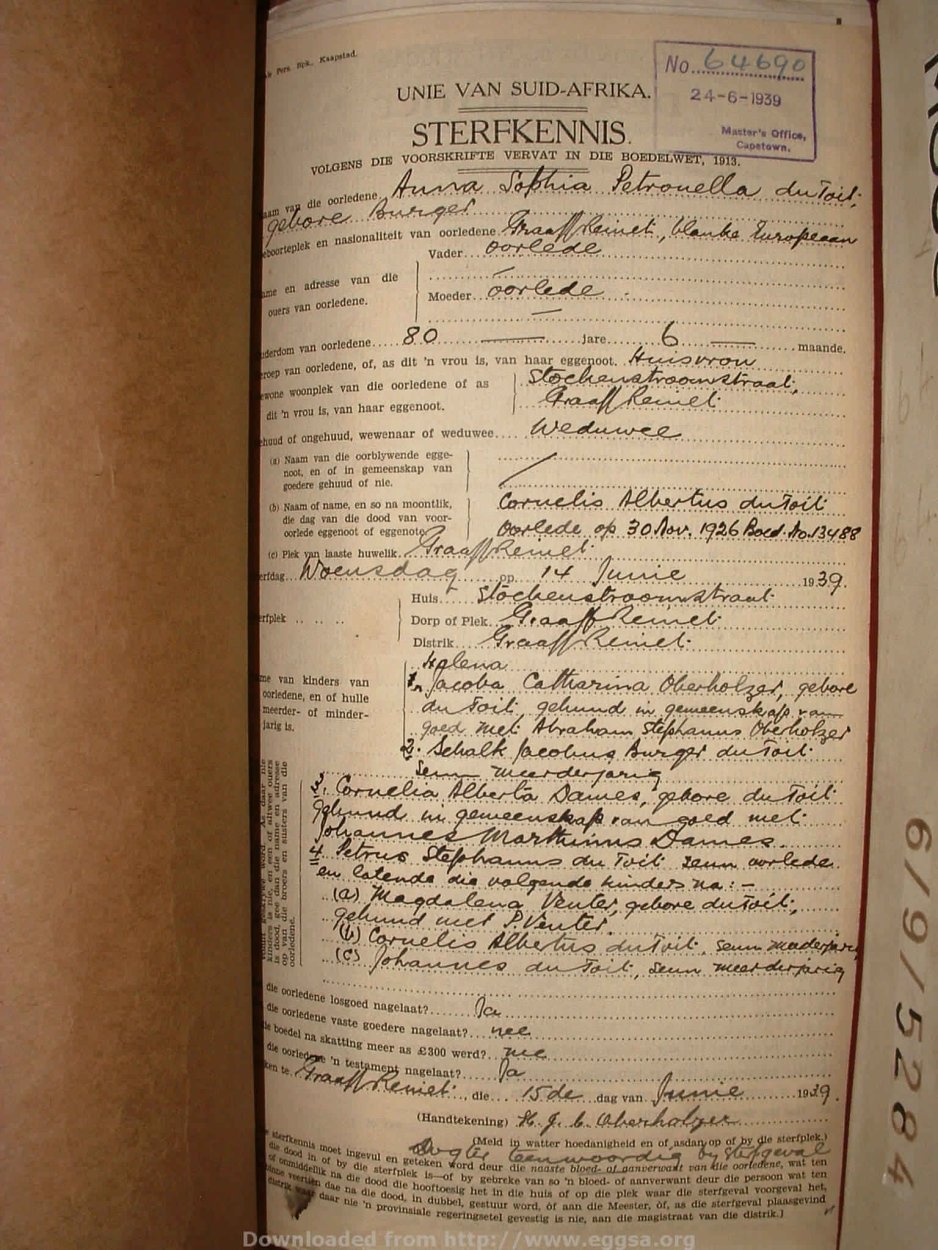 Pers Bpk. Kaapstad.
No. 64690
24-6-1939
Master's Office,
Capetown.
UNIE VAN SUID-AFRIKA.
STERFKENNIS.
VOLGENS DIE VOORSKRIFTE VERVAT IN DIE BOEDELWET, 1913.
aam van die oorledene Anna Sophia Petronella du Toit,
gebore Burger
eboorteplek en nasionaliteit van oorledene Graaff Reinet, blanke Europeaan
Vader oorlede
ame en adresse van die
ouers van oorledene.
Moeder oorlede
uderdom van oorledene 80 jare 6 maande.
eroep van oorledene, of, as dit 'n vrou is, van haar eggenoot. Huisvrou
ewone woonplek van die oorledene of as
dit 'n vrou is, van haar eggenoot.
Stockenstroomstraat,
Graaff Reinet
ehuud of ongehuud, wewenaar of weduwee Weduwee
(a) Naam van die oorblywende egge-
noot, en of in gemeenskap van
goedere gehuud of nie.
(b) Naam of name, en so na moontlik,
die dag van die dood van voor-
oorlede eggenoot of eggenote
Cornelis Albertus du Toit
Oorlede op 30 Nov. 1926 Boed. No. 13488
(c) Plek van laaste huwelik. Graaff Reinet
erfdag Woensdag op 14 Junie 1939.
erfplek
Huis Stockenstroomstraat
Dorp of Plek. Graaff Reinet
Distrik Graaff Reinet
me van kinders van
oorledene, en of hulle
meerder- of minder-
jarig is.
Helena
1. Jacoba Catharina Oberholzer, gebore
du Toit, gehuud in gemeenskap van
goed met Abraham Stephanus Oberholzer
2. Schalk Jacobus Burger du Toit
Seun meerderjarig
3. Cornelia Alberta Dames, gebore du Toit
gehuud in gemeenskap van goed met
Johannes Marthinus Dames.
4. Petrus Stephanus du Toit seun oorlede
en latende die volgende kinders na:-
(a) Magdalena Venter, gebore du Toit,
gehuud met P. Venter.
(b) Cornelis Albertus du Toit, seun meerderjarig
(c) Johannes du Toit, seun meerderjarig
kinders is nie, en een of altwee ouers
is dood, gee dan die name en adresse
op van die broers en susters van die
oorledene.
die oorledene losgoed nagelaat? Ja
die oorledene vaste goedere nagelaat? nee
ie boedel na skatting meer as £300 werd? nee
die oorledene 'n testament nagelaat? Ja
ken te Graaff Reinet, die 15de dag van Junie 1939.
(Handtekening) H. J. C. Oberholzer
(Meld in watter hoedanigheid en of asdan op of by die sterfplek.)
Dogter teenwoordig by sterfgeval
sterfkennis moet ingevul en geteken word deur die naaste bloed- of aanverwant van die oorledene, wat ten
die dood in of by die sterfplek is—of by gebreke van so 'n bloed- of aanverwant deur die persoon wat ten
of onmiddellik na die dood die hooftoesig het in die huis of op die plek waar die sterfgeval voorgeval het,
veertien dae na die dood, in dubbel, gestuur word, òf aan die Meester, òf, as die sterfgeval plaasgevind
distrik waar daar nie 'n provinsiale regeringsetel gevestig is nie, aan die magistraat van die distrik.)
6/9/15284
Downloaded from http://www.eggsa.org